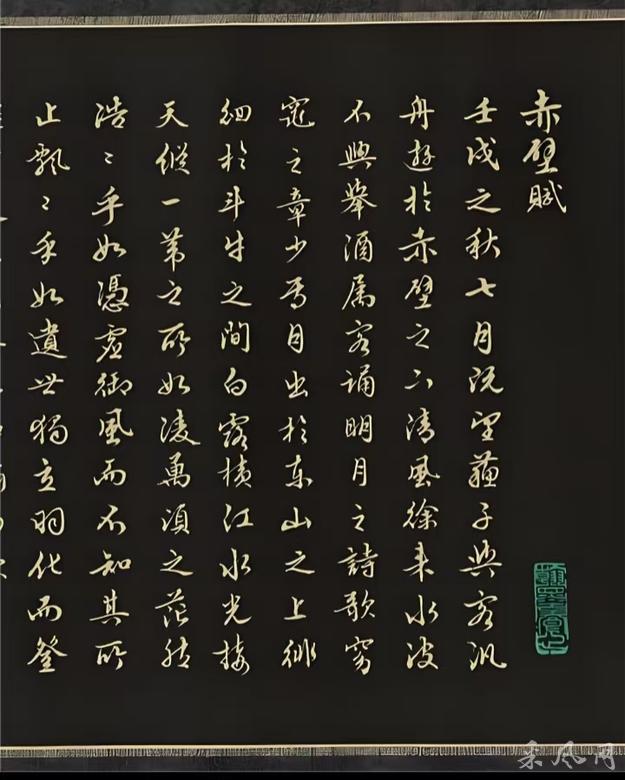 赤壁賦
壬戌之秋七月既望蘓子與客汎
舟遊於赤壁之下清風徐来水波
不興舉酒属客誦明月之詩歌窈
窕之章少焉月出於东山之上徘
徊於斗牛之間白露横江水光接
天縱一葦之所如凌萬頃之茫然
浩〻乎如憑虚御風而不知其所
止飄〻乎如遺世獨立羽化而登
采风网